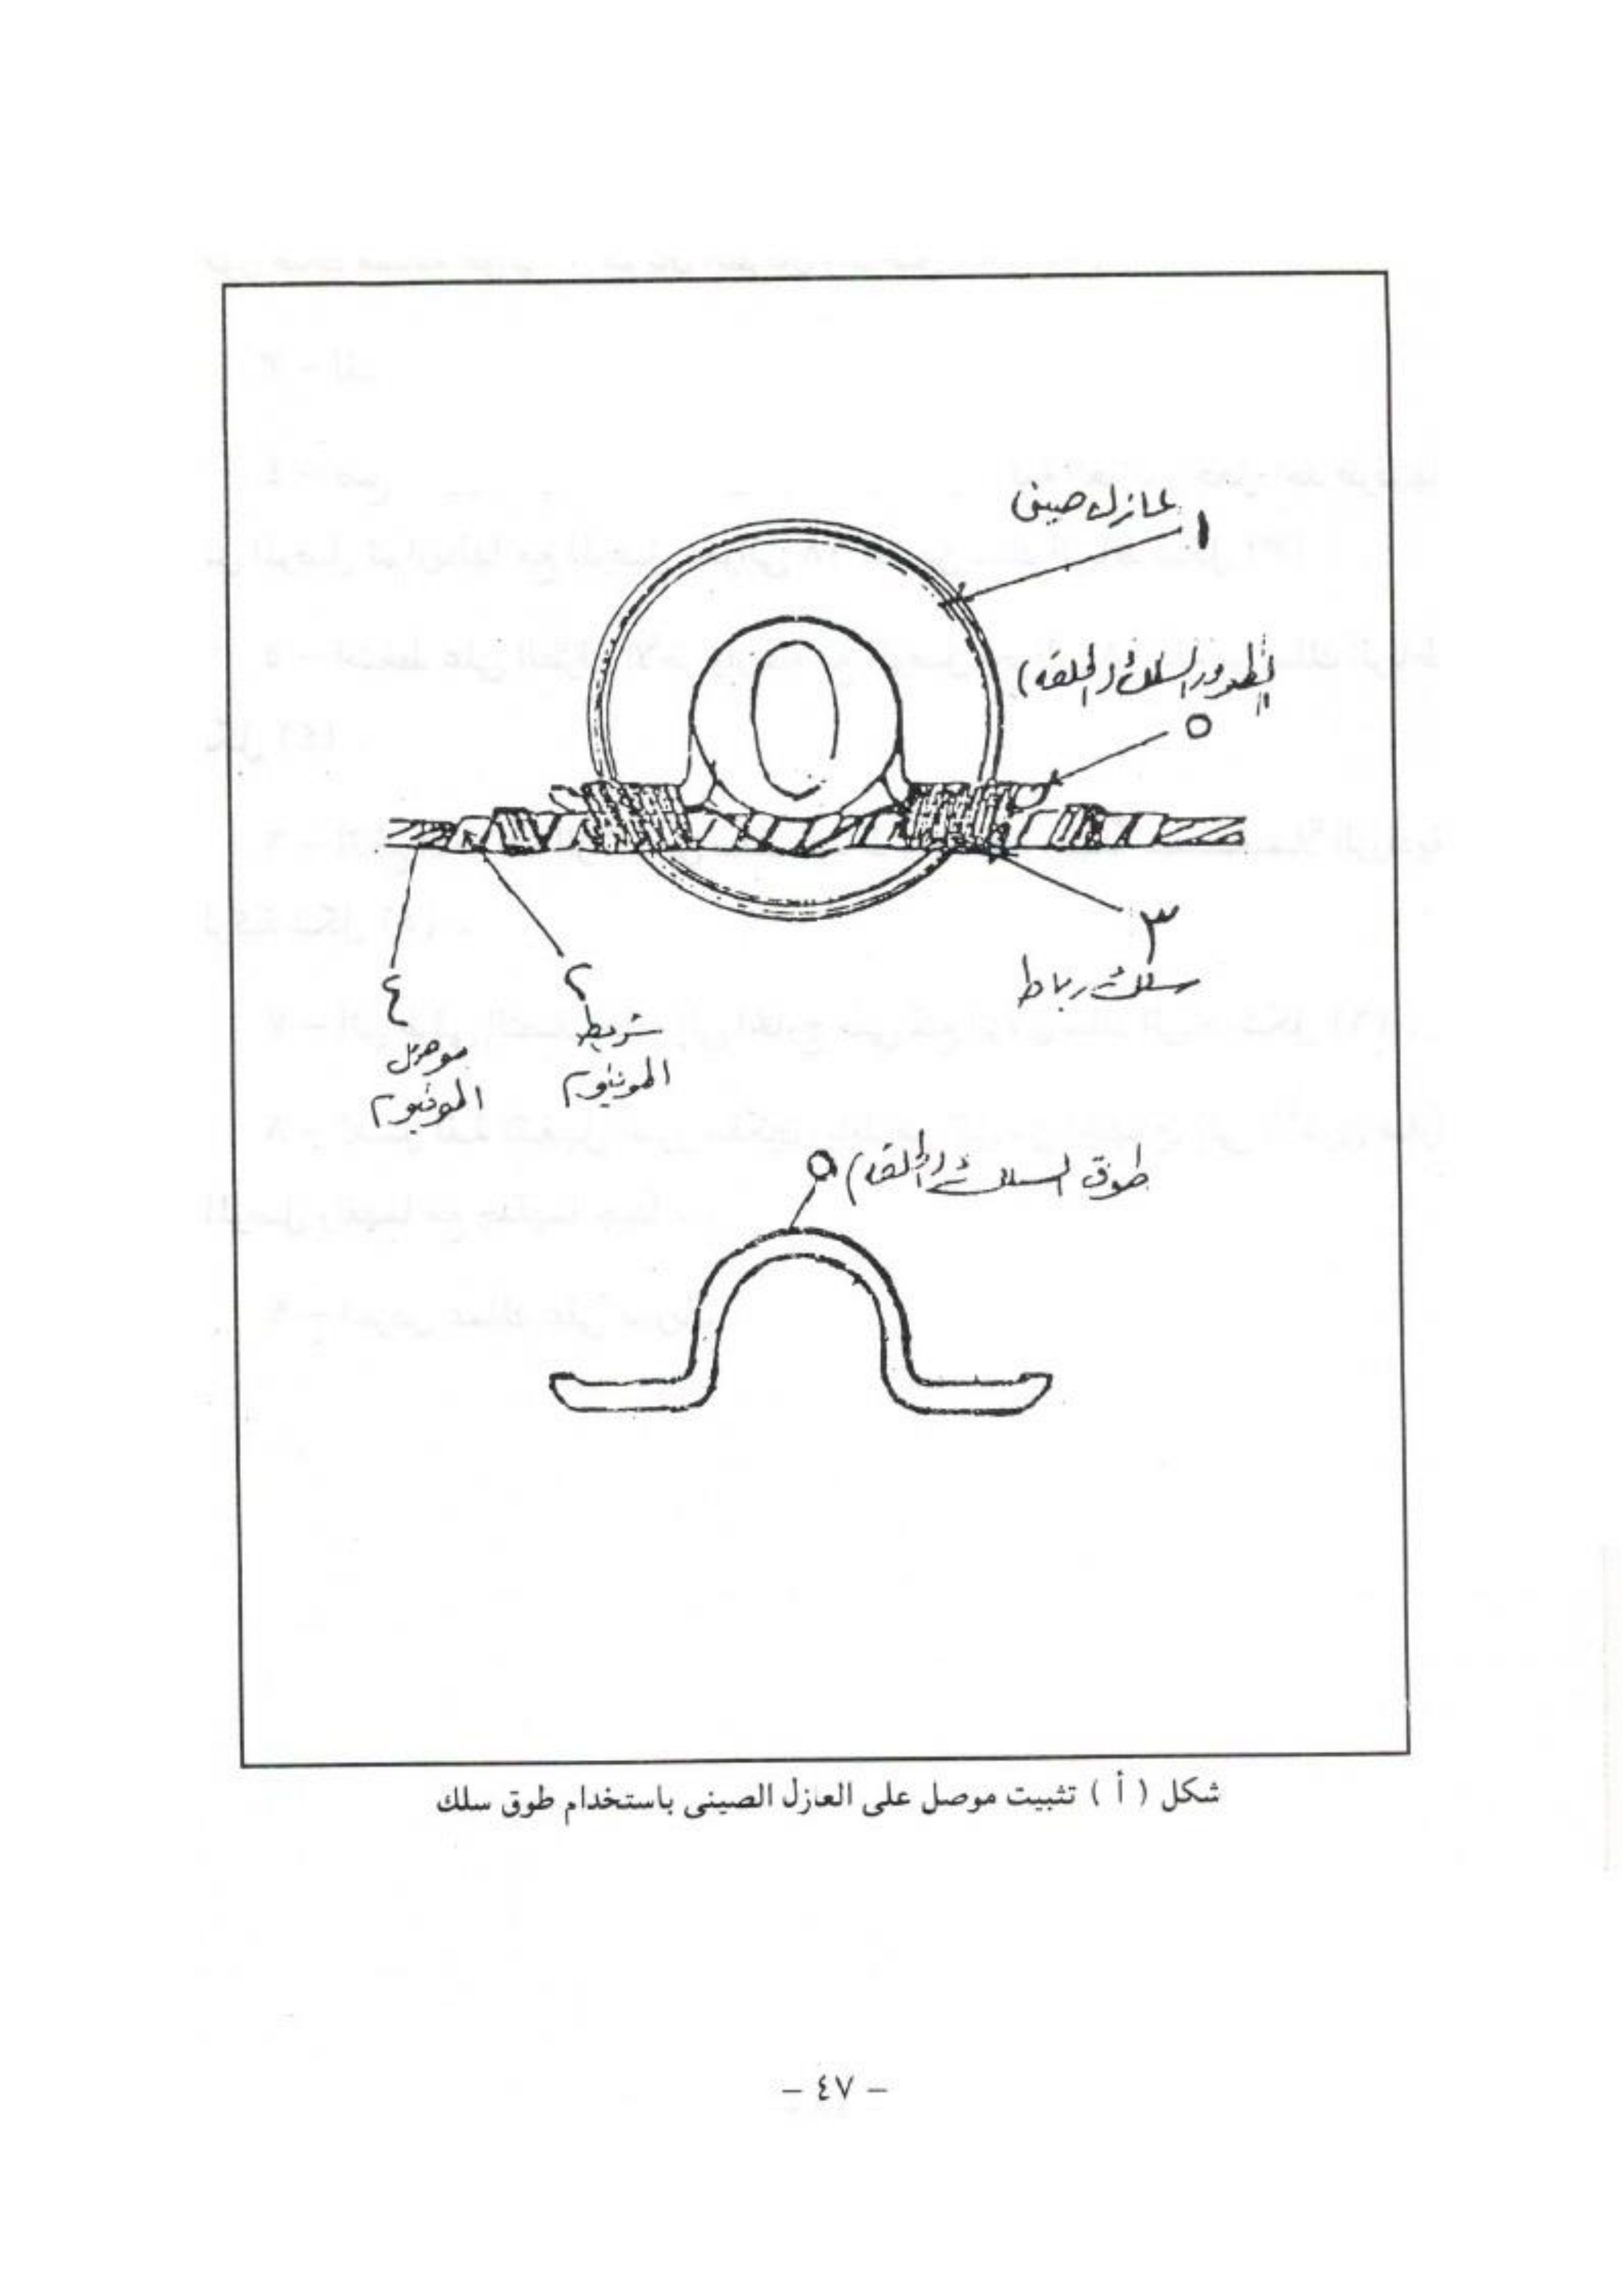 عازل صينى
١
السلك (الحلقه)
٥
٣
سلك رباط
٢
شريط
المونيوم
٤
موصل
المونيوم
طوق السلك (الحلقه) ٥
شكل ( أ ) تثبيت موصل على العازل الصينى باستخدام طوق سلك
– ٤٧ –